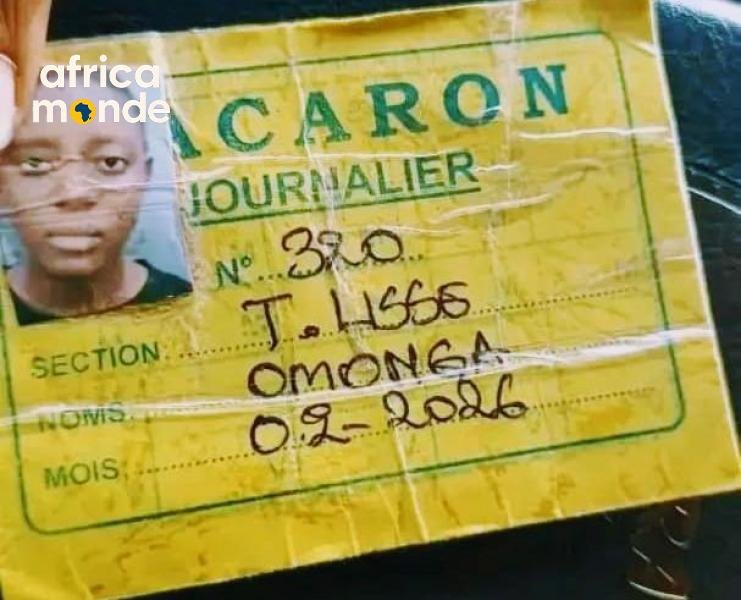 africa
monde
ACARON
JOURNALIER
N° 320
SECTION T. LISSE
NOMS OMONGA
MOIS 02-2026